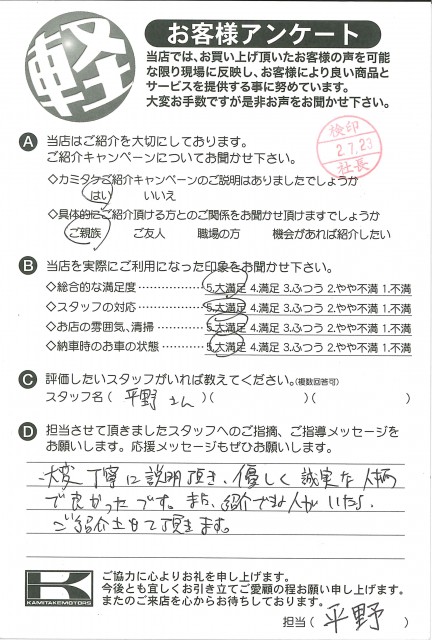 軽
お客様アンケート
当店では、お買い上げ頂いたお客様の声を可能
な限り現場に反映し、お客様により良い商品と
サービスを提供する事に努めています。
大変お手数ですが是非お声をお聞かせ下さい。
検印
2.7.23
社長
A 当店はご紹介を大切にしております。
ご紹介キャンペーンについてお聞かせ下さい。
◇カミタケご紹介キャンペーンのご説明はありましたでしょうか
はい いいえ
◇具体的にご紹介頂ける方とのご関係をお聞かせ頂けますでしょうか
ご親族 ご友人 職場の方 機会があれば紹介したい
B 当店を実際にご利用になった印象をお聞かせ下さい。
◇総合的な満足度…………… 5.大満足 4.満足 3.ふつう 2.やや不満 1.不満
◇スタッフの対応…………… 5.大満足 4.満足 3.ふつう 2.やや不満 1.不満
◇お店の雰囲気、清掃……… 5.大満足 4.満足 3.ふつう 2.やや不満 1.不満
◇納車時のお車の状態……… 5.大満足 4.満足 3.ふつう 2.やや不満 1.不満
C 評価したいスタッフがいれば教えてください。(複数回答可)
スタッフ名( 平野さん )( )( )
D 担当させて頂きましたスタッフへのご指摘、ご指導メッセージを
お願いします。応援メッセージもぜひお願いします。
大変丁寧に説明頂き、優しく誠実な人柄
で良かったです。また、紹介できる人がいたら、
ご紹介させて頂きます。
K
KAMITAKEMOTORS
ご協力に心よりお礼を申し上げます。
今後とも宜しくお引き立てご愛顧の程お願い申し上げます。
またのご来店を心からお待ちしております。
担当( 平野 )